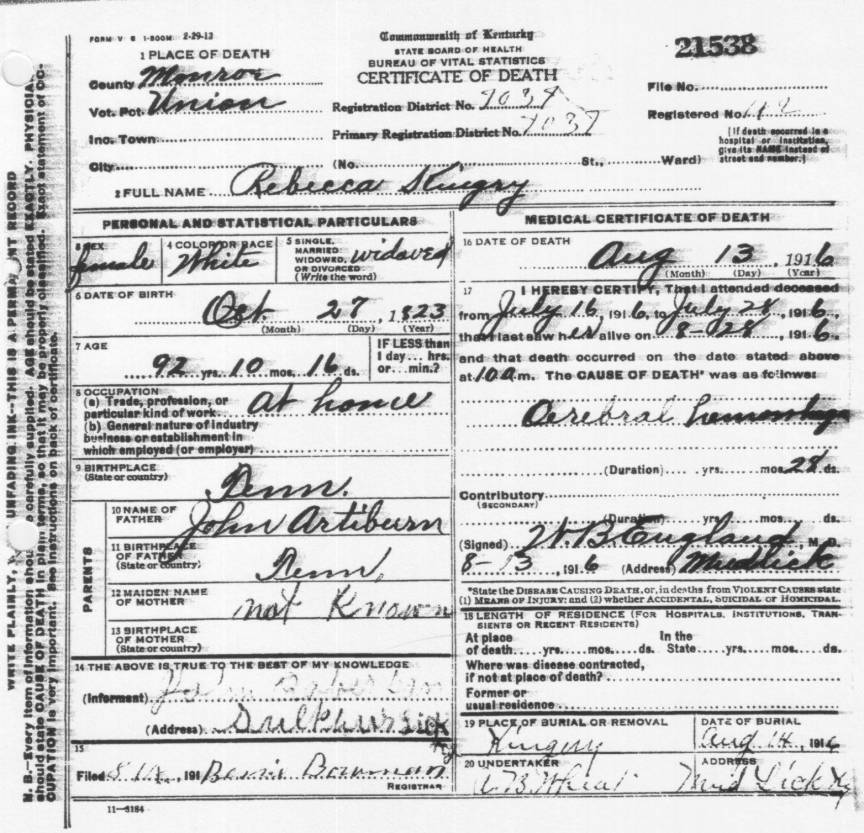 FORM V S 1-500M 2-29-12
Commonwealth of Kentucky
STATE BOARD OF HEALTH
BUREAU OF VITAL STATISTICS
CERTIFICATE OF DEATH
21538
1 PLACE OF DEATH
County Monroe
Vot. Pct Union
Inc. Town
City
Registration District No. 7037
Primary Registration District No. 7037
(No. St., Ward)
File No.
Registered No. 112
[If death occurred in a hospital or institution, give its NAME instead of street and number.]
2 FULL NAME Rebecca Kingry
PERSONAL AND STATISTICAL PARTICULARS
3 SEX female
4 COLOR OR RACE White
5 SINGLE, MARRIED WIDOWED, OR DIVORCED (Write the word) widowed
6 DATE OF BIRTH
Oct 27 1823
(Month) (Day) (Year)
7 AGE
92 yrs. 10 mos. 16 ds.
IF LESS than 1 day... hrs. or... min.?
8 OCCUPATION
(a) Trade, profession, or particular kind of work at home
(b) General nature of industry
business or establishment in
which employed (or employer)
9 BIRTHPLACE
(State or country)
PARENTS
10 NAME OF FATHER John Artiburn
11 BIRTHPLACE OF FATHER
(State or country)
12 MAIDEN NAME OF MOTHER not Known
13 BIRTHPLACE OF MOTHER
(State or country)
14 THE ABOVE IS TRUE TO THE BEST OF MY KNOWLEDGE
(Informant)
(Address) Sulphur Lick
Ky
15
Filed 191 Bowman
REGISTRAR
11-5184
MEDICAL CERTIFICATE OF DEATH
16 DATE OF DEATH
Aug 13, 1916
(Month) (Day) (Year)
17 I HEREBY CERTIFY, That I attended deceased
from July 16, 1916, to July 28, 1916,
that I last saw her alive on 8-28, 1916.
and that death occurred on the date stated above
at 10 a m. The CAUSE OF DEATH* was as follows:
Cerebral hemorrhage
(Duration) yrs. mos. 28 ds.
Contributory
(SECONDARY)
(Duration) yrs. mos. ds.
(Signed) W. B. England, M. D.
8-13, 1916 (Address) Mudlick
*State the DISEASE CAUSING DEATH, or, in deaths from VIOLENT CAUSES state
(1) MEANS OF INJURY; and (2) whether ACCIDENTAL, SUICIDAL or HOMICIDAL.
18 LENGTH OF RESIDENCE (FOR HOSPITALS, INSTITUTIONS, TRANSIENTS OR RECENT RESIDENTS)
At place of death yrs. mos. ds. In the State yrs. mos. ds.
Where was disease contracted,
if not at place of death?
Former or
usual residence
19 PLACE OF BURIAL OR REMOVAL
Kingery
DATE OF BURIAL
Aug 14, 1916
20 UNDERTAKER
ADDRESS
Mud Lick Ky
WRITE PLAINLY, UNFADING INK--THIS IS A PERMANENT RECORD
N. B.--Every item of information should carefully supplied. AGE should be stated EXACTLY. PHYSICIA
should state CAUSE OF DEATH in plain terms, so that it may be properly classified. Exact statement of OC-
CUPATION is very important. See instructions on back of certificate.